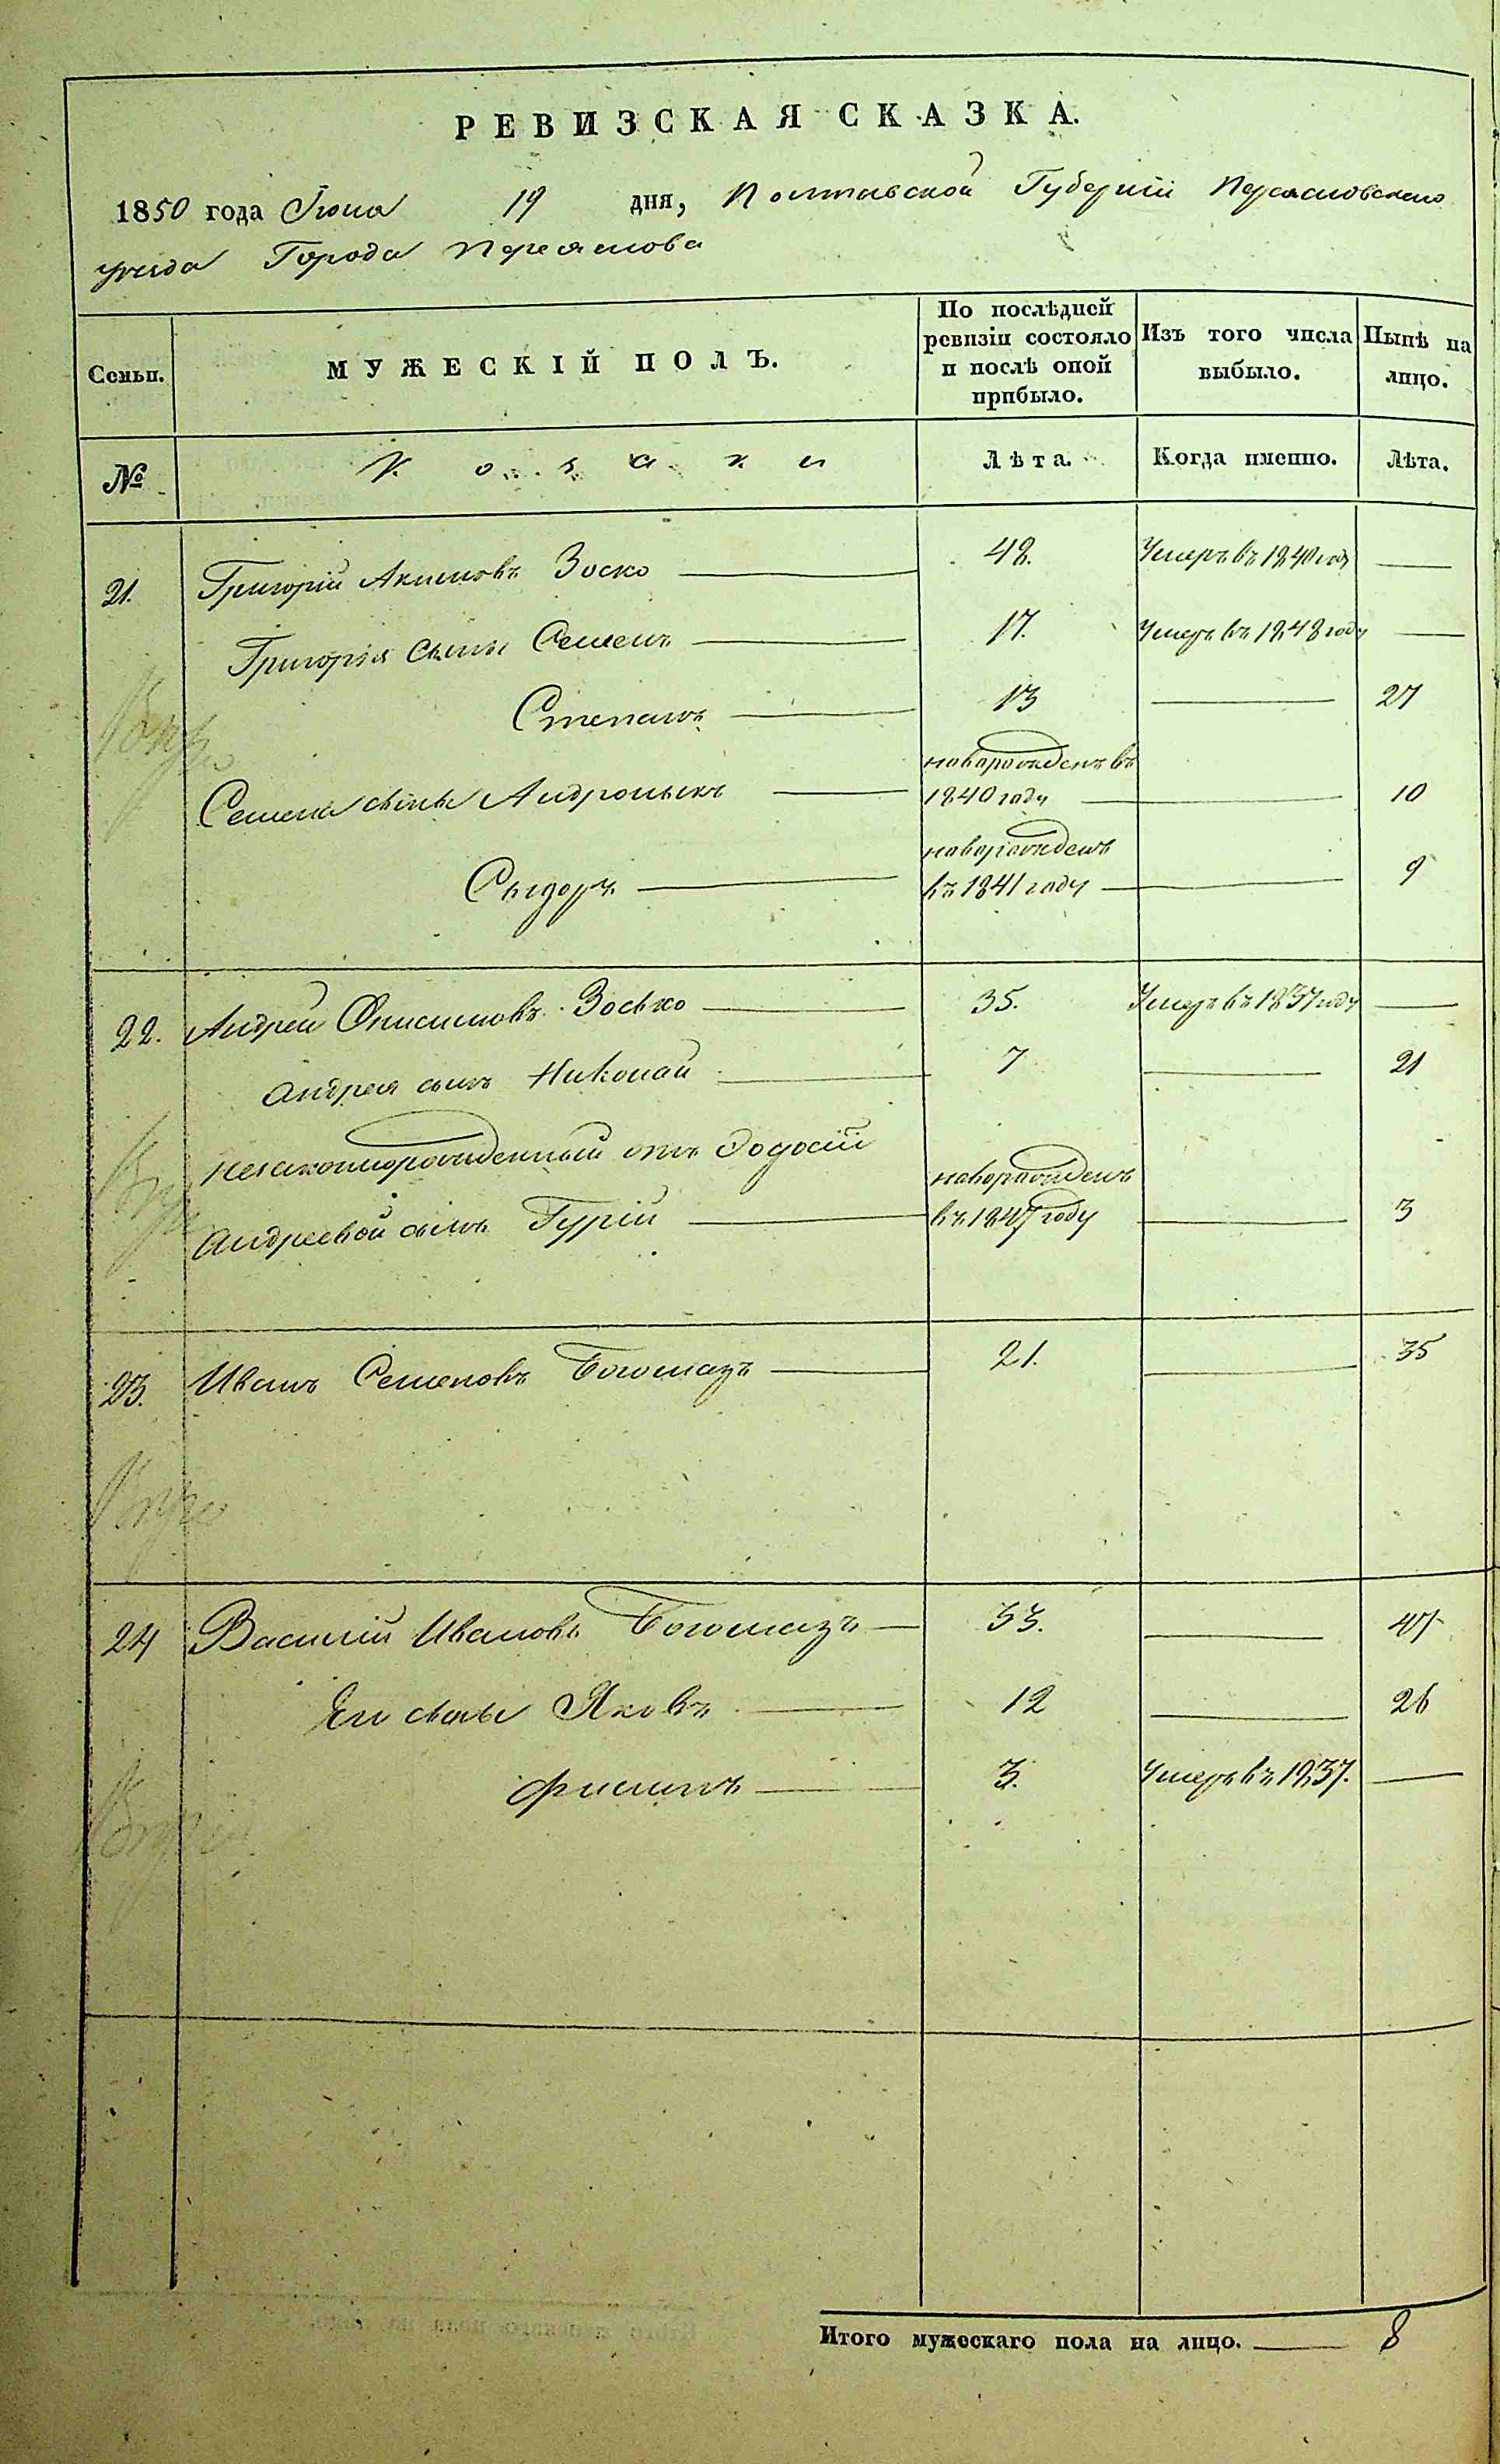 РЕВИЗСКАЯ СКАЗКА.
1850 года Іюня 19 дня, Полтавской Губерніи Переяславскаго
уезда Города Переяслова
Семьи. МУЖЕСКІЙ ПОЛЪ. По послѣдней ревизіи состояло и послѣ оной прибыло. Изъ того числа выбыло. Нынѣ на лицо.
№ Козаки Лѣта. Когда именно. Лѣта.
21. Григорій Акимовъ Зоско 48. Умеръ въ 1840 году
Григорія сыны Семенъ 17. Умеръ въ 1848 году
Степанъ 13 27
Семена сыны Андроникъ новорожденъ въ 1840 году 10
Сидоръ новорожденъ въ 1841 году 9
22. Андрей Онисимовъ Зосько 35. Умеръ въ 1837 году
Андрея сынъ Николай 7 21
незаконнорожденный отъ Додосіи
Андреевой сынъ Гурій новорожденъ въ 1847 году 3
23. Иванъ Семеновъ Богомазъ 21. 35
24 Василій Ивановъ Богомазъ 33. 47
Его сыны Яковъ 12 26
Филипъ 3. Умеръ въ 1837.
Итого мужескаго пола на лицо. 8